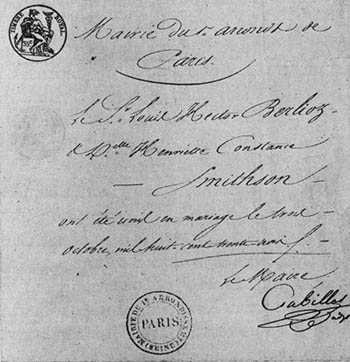 TIMBRE ROYAL
Mairie du 1er arrondt de
Paris.
Le Sr. Louis Hector Berlioz
& Delle Henriette Constance
Smithson
ont été unis en mariage le trois
octobre, mil huit cent trente trois
Le Maire
MAIRIE DU 1er ARRONDISSEMENT
PARIS
(SEINE)